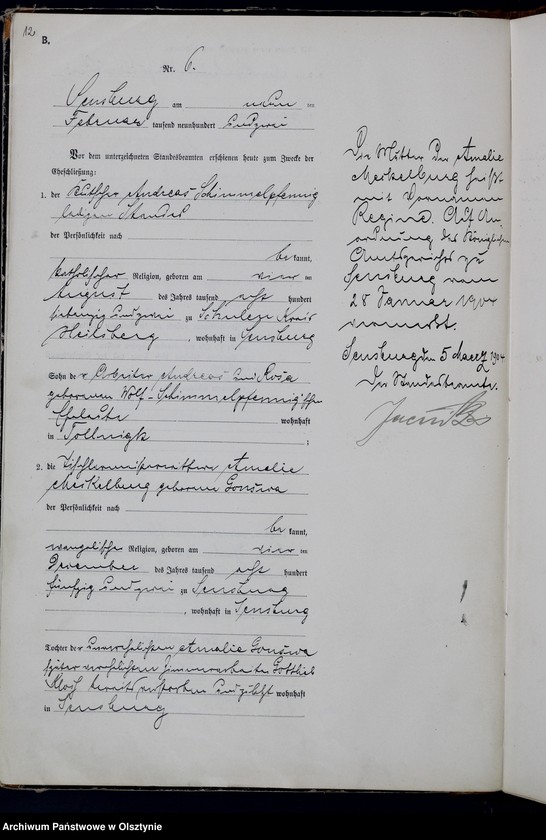 12.
B.
Nr. 6.
Sensburg am neun ten
Februar tausend neunhundert und zwei
Vor dem unterzeichneten Standesbeamten erschienen heute zum Zwecke der
Eheschließung:
1. der Kutscher Andreas Schimmelpfennig
ledigen Standes
der Persönlichkeit nach
be kannt,
katholischer Religion, geboren am vier ten
August des Jahres tausend acht hundert
siebenzig und zwei zu Schulen Kreis
Heilsberg, wohnhaft in Sensburg
Sohn der Arbeiter Andreas und Rosa
geborenen Wolf-Schimmelpfennig'schen
Eheleute wohnhaft
in Tollnigk;
2. die Tischlermeisterwittwe Amalie
Meckelburg geborene Gonswa
der Persönlichkeit nach
be kannt,
evangelischer Religion, geboren am vier ten
Dezember des Jahres tausend acht hundert
fünfzig und zwei zu Sensburg
, wohnhaft in Sensburg
Tochter der unverehelichten Amalie Gonswa
später verehelichten Zimmerarbeiter Gottlieb
bereits verstorben und zuletzt wohnhaft
in Sensburg
Die Mutter der Amalie
Meckelburg heißt
mit Vornamen
Regine. Auf An-
ordnung des Königlichen
Amtsgerichts zu
Sensburg vom
28 Januar 1904
vermerkt.
Sensburg den 5 Maerz 1904
Der Standesbeamte.
Archiwum Państwowe w Olsztynie